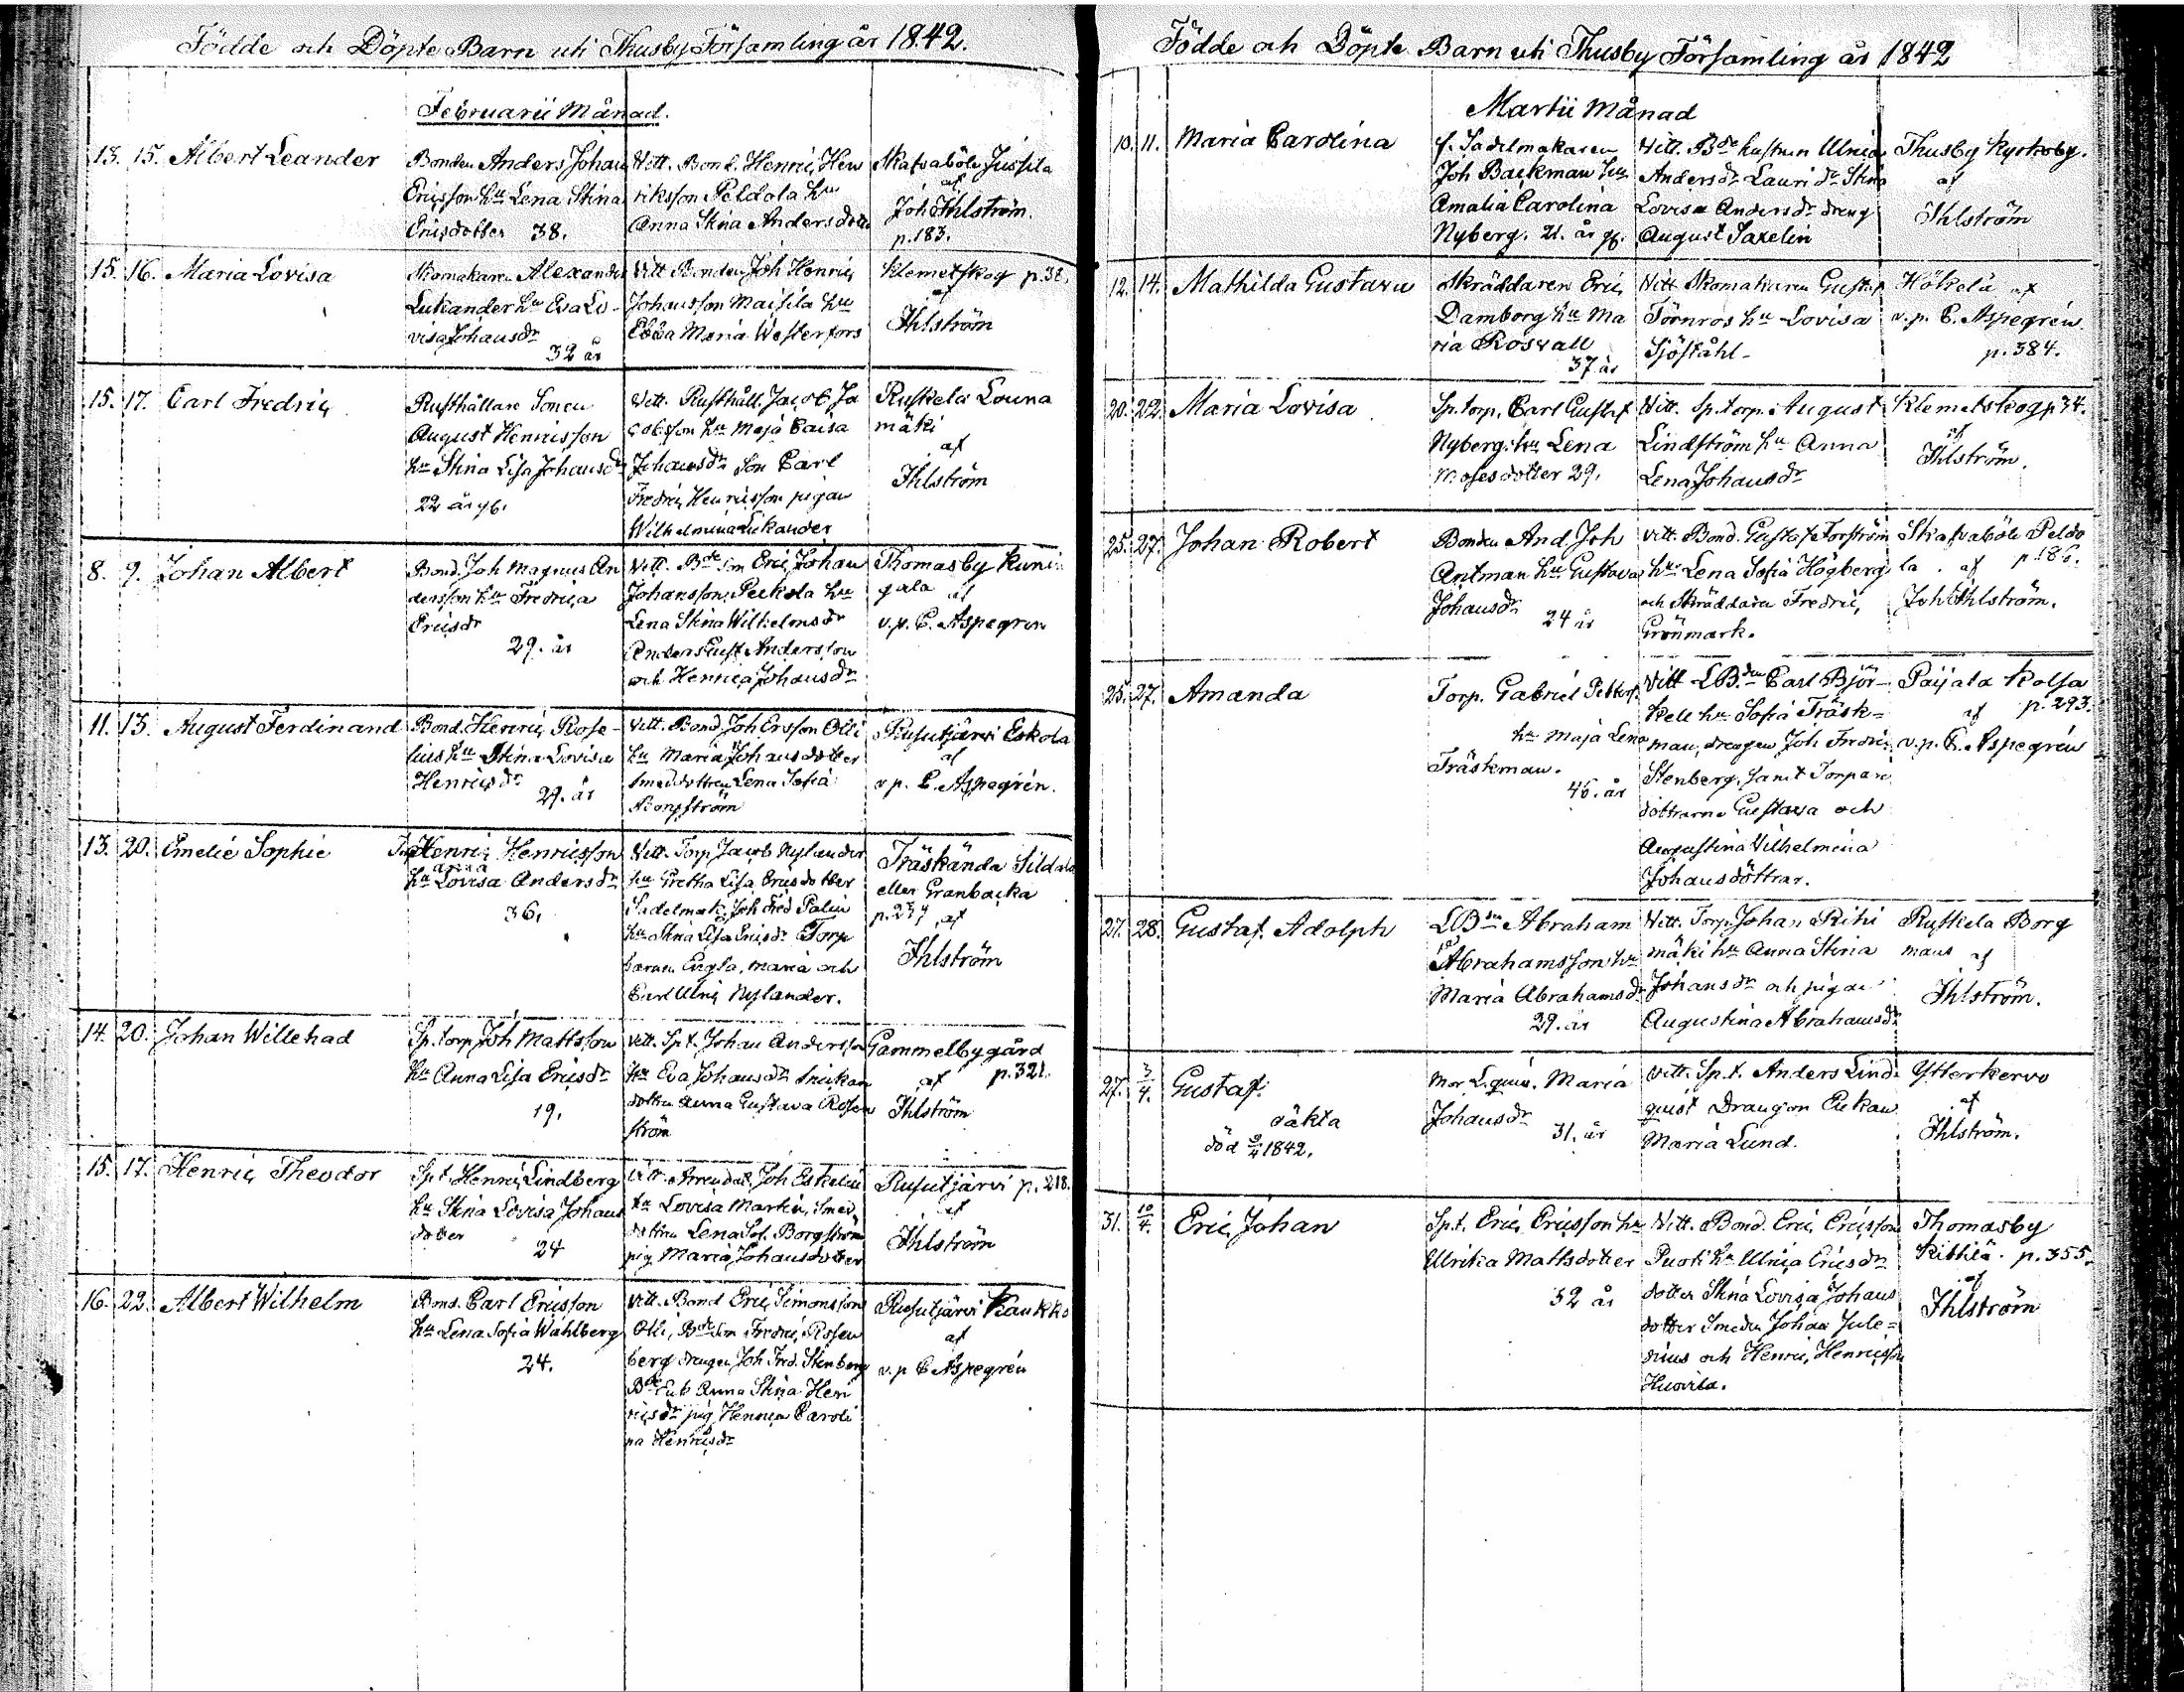 Födde och Döpte Barn uti Thusby Församling år 1842.
Februarii Månad.
13. 15. Albert Leander
Bonden Anders Johan
Ericsson hu Lena Stina
Ericsdotter 38.
Vitt. Bond. Henric Hen
riksson Peldola hu
Anna Stina Andersdotter
Skafvaböle Jussila
af
Joh Ihlström.
p. 183.
15. 16. Maria Lovisa
Skomakaren Alexander
Lukander hu Eva Lo-
visa Johansdr
32 år
Vitt Bonden Joh Henric
Johansson Maisila hu
Ebba Maria Westerfors
Klemetskog p. 38.
af
Ihlström
15. 17. Carl Fredric
Rusthållare Sonen
August Henricsson
hu Stina Lisa Johansdr
22 år
Vitt. Rusthåll. Jacob Ja
cobsson hu Maja Caisa
Johansdr Son Carl
Fredric Henricsson pigan
Wilhelmina Lukander
Ruskela Louna
mäki
af
Ihlström
8. 9. Johan Albert
Bond. Joh Magnus An
dersson hu Fredrica
Ericsdr
29. år
Vitt. Bde son Eric Johan
Johansson Peckola hu
Lena Stina Wilhelmsdr
Anders Gust Andersson
och Henrica Johansdr
Thomasby Kunin
gala af
v.p. C. Aspegren
11. 13. August Ferdinand
Bond. Henric Rose-
lius hu Stina Lovisa
Henricsdr
29. år
Vitt. Bond Joh Ersson Olli
hu Maria Johansdotter
Smeddottren Lena Sofia
Borgström
Rusutjärvi Eskola
af
v.p. C. Aspegrén.
13. 20. Emelie Sophie
Henric Henricsson
Anna
hu Lovisa Andersdr
36.
Vitt. Torp Jacob Nylander
hu Gretha Lisa Ericsdotter
Sadelmak. Joh Fred Palin
hu Stina Lisa Ericsdr Torp
baren Engla, Maria och
Carl Ulric Nylander.
Träskända Sildala
eller Granbacka
p. 237 af
Ihlström
14. 20. Johan Willehad
Sp. torp Joh Mattsson
hu Anna Lisa Ericsdr
19.
Vitt. Sp.t. Johan Andersson
hu Eva Johansdr Snickar
dotter Anna Gustava Rosen
ström
Gammelby gård
af p. 321.
Ihlström
15. 17. Henric Theodor
Sp.t. Henric Lindberg
hu Stina Lovisa Johans
dotter 24
Vitt. Arrendat. Joh Eskelin
hu Lovisa Martin, Smed
dottren Lena Sof. Borgström
pig Maria Johansdotter
Rusutjärvi p. 218.
af
Ihlström
16. 22. Albert Wilhelm
Bond. Carl Ericsson
hu Lena Sofia Wahlberg
24.
Vitt. Bond Eric Simonsson
Olli, Bde Son Fredric Rosen
berg drengen Joh Fred. Stenberg
Bde Anna Stina Hen
ricsdr pig Henrica Caroli
na Henricsdr
Rusutjärvi Kaukko
af
v.p C Aspegrén
Födde och Döpte Barn uti Thusby Församling år 1842
Martii Månad
10. 11. Maria Carolina
f. Sadelmakaren
Joh Backman hu
Amalia Carolina
Nyberg. 21. år
Vitt. Bde hustrun Ulrica
Andersdr Lauri dr Stina
Lovisa Andersdr dreng
August Saxelin
Thusby Kyrkoby.
af
Ihlström
12. 14. Mathilda Gustava
Skräddaren Eric
Damborg hu Ma
ria Rosvall
37 år
Vitt Skomakaren Gustaf
Törnros hu Lovisa
Sjöståhl-
Hökelä af
v.p. C. Aspegrén
p. 384.
20. 22. Maria Lovisa
Sp. torp. Carl Gustaf
Nyberg. hu Lena
Mosesdotter 29.
Vitt. Sp. torp. August
Lindström hu Anna
Lena Johansdr
Klemetskog p 34.
af
Ihlström.
25. 27. Johan Robert
Bonden And. Joh
Antman hu Gustava
Johansdr 24 år
Vitt. Bond. Gustaf Forström
hu Lena Sofia Högberg
och Skräddaren Fredric
Grönmark.
Skafvaböle Peldo
la. af p. 186.
Joh Ihlström.
25. 27. Amanda
Torp. Gabriel Petterss.
hu Maja Lena
Träskman.
46. år
Vitt LBden Carl Björ-
kell hu Sofia Träsk=
man, drengen Joh Fredric
Stenberg, samt Torpare
döttrarna Gustava och
Augustina Wilhelmina
Johansdöttrar.
Paijala Kolsa
af p. 293.
v.p. C. Aspegrén
27. 28. Gustaf Adolph
LBden Abraham
Abrahamsson hu
Maria Abrahamsdr
29. år
Vitt. Torp. Johan Rihi
mäki hu Anna Stina
Johansdr och pigan
Augustina Abrahamsdr
Ruskela Borg
mans af
Ihlström.
27. 3/4. Gustaf.
oäkta
död 9/4 1842.
Mor L. quin. Maria
Johansdr
31. år
Vitt. Sp.t. Anders Lind-
quist Dragon Enkan
Maria Lund.
Ytterkervo
af
Ihlström.
31. 10/4. Eric Johan
Sp.t. Eric Ericsson hu
Ulrika Mattsdotter
32 år
Vitt. Bond. Eric Ericsson
Puoti hu Ulrica Ericsdr
dotter Stina Lovisa Johans
dotter Smeden Johan Jule=
nius och Henric Henricsson
Huovila.
Thomasby
Kithilä. p. 355.
af
Ihlström